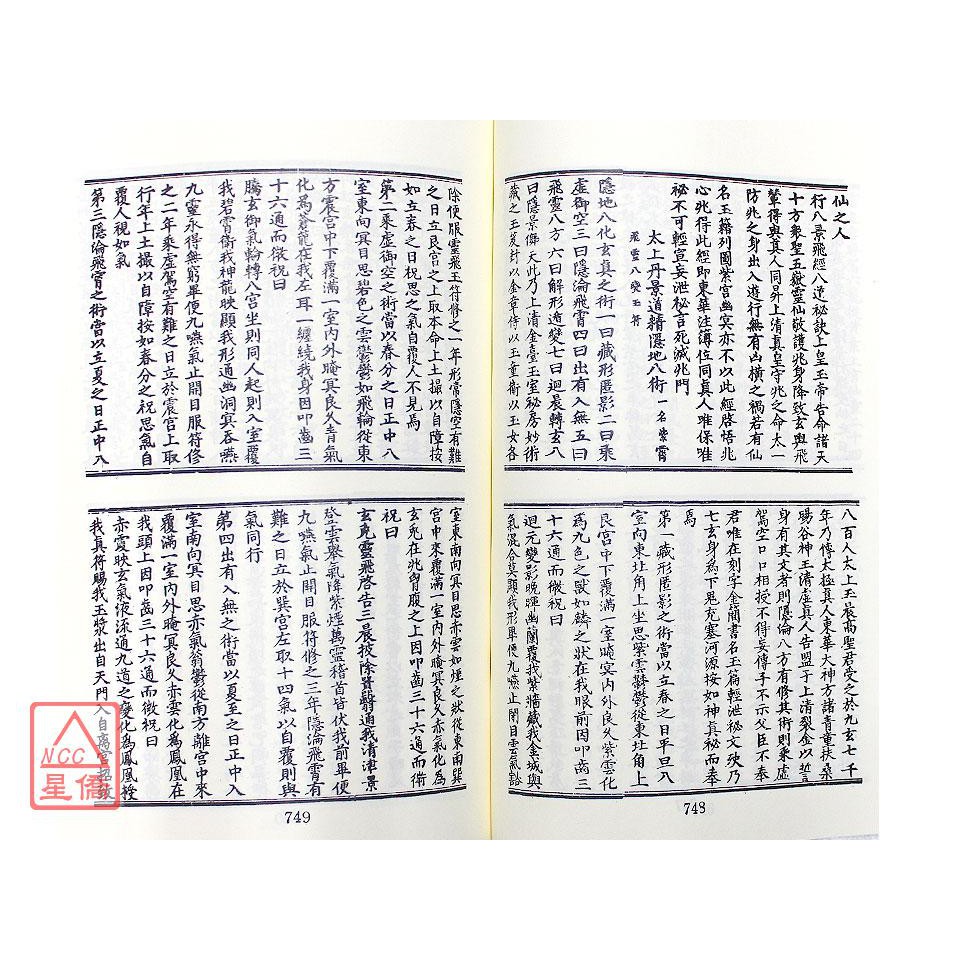 仙之人
行八景飛經八道秘訣上皇玉帝告命諸天
十方衆聖五嶽靈仙敬護兆身降致玄輿飛
輦得與真人同昇上清真皇守兆之命太一
防兆之身出入遊行無有凶橫之禍若有仙
名玉籍列圖紫宮幽冥亦不以此經啓悟兆
心兆得此經即東華注簿位同真人唯保唯
祕不可輕宣妄泄秘言死滅兆門
太上丹景道精隱地八術一名紫霄
飛靈八變玉符
隱地八化玄真之術一曰藏形匿影二曰乘
虛御空三曰隱淪飛霄四曰出有入無五曰
飛靈八方六曰解形遁變七曰迴晨轉玄八
曰隱景儛天此乃上清金臺玉室秘房妙術
藏之玉笈封以金章侍以玉童衛以玉女各
八百人太上玉晨高聖君受之於九玄七千
年乃傳太極真人東華大神方諸青童扶桑
暘谷神王清虛真人告盟于上清裂金以誓
身有其文者則隱淪八方有修其術則乘虛
駕空口口相授不得妄傳手不示父臣不奉
君唯在刻字金簡書名玉篇輕泄秘文殃乃
七玄身爲下鬼充塞河源按如神真祕而奉
焉
第一藏形匿影之術當以立春之日平旦入
室向東北角上坐思紫雲鬱鬱從東北角上
艮宮中下覆滿一室晻冥內外良久紫雲化
爲九色之獸如麟之狀在我眼前因叩齒三
十六通而微祝曰
迴元變影晚暉幽蘭覆我紫牆藏我金城與
氣混合莫顯我形畢便九嚥止閉目雲氣豁
除便服靈飛玉符修之一年形常隱空有難
之日立艮宮之上取本命上土撮以自障按
如立春之日祝思之氣自覆人不見焉
第二乘虛御空之術當以春分之日正中入
室東向冥目思碧色之雲鬱鬱如飛輪從東
方震宮中下覆滿一室內外晻冥良久青氣
化爲蒼龍在我左耳一纏繞我身因叩齒三
十六通而微祝曰
騰玄御氣輪轉八宮坐則同人起則入室覆
我碧霄衛我神龍映顯我形通幽洞冥吞嚥
九靈永得無窮畢便九嚥氣止開目服符修
之二年乘虛駕空有難之日立於震宮上取
行年上土撮以自障按如春分之祝思氣自
覆人視如氣
第三隱淪飛霄之術當以立夏之日正中入
室東南向冥目思赤雲如煙之狀從東南巽
宮中來覆滿一室內外晻冥良久赤氣化爲
玄兔在兆胷腹之上因叩齒三十六通而微
祝曰
玄兔靈飛啓告三晨披除翳通我清津景
登雲轝氣降紫煙萬靈稽首皆伏我前畢便
九嚥氣止開目服符修之三年隱淪飛霄有
難之日立於巽宮左取十四氣以自覆則與
氣同行
第四出有入無之術當以夏至之日正中入
室南向冥目思赤氣翁鬱從南方離宮中來
覆滿一室內外晻冥良久赤雲化爲鳳凰在
我頭上因叩齒三十六通而微祝曰
赤霞映玄氣液流通九道之變化爲鳳凰授
我真符賜我玉漿出自天門入自離宮
748
749
NCC
星僑